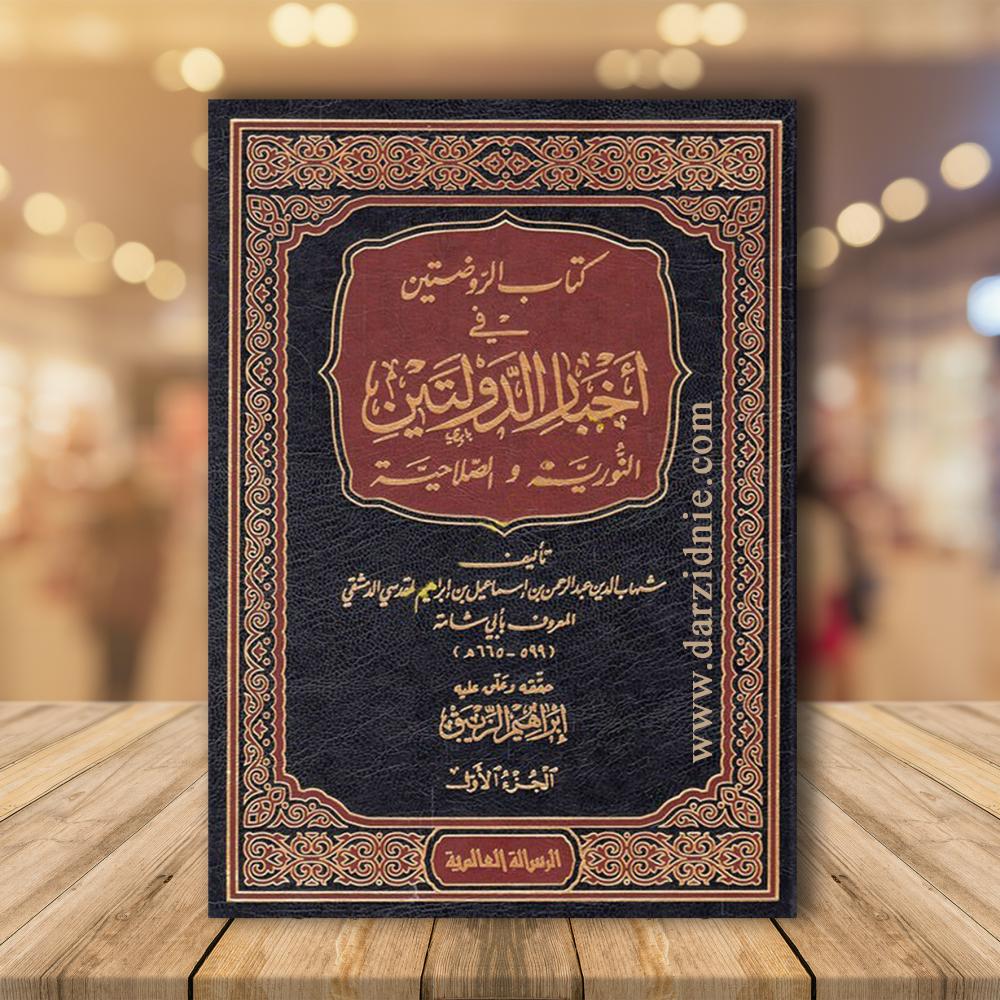 كتاب الرّوضتين
في
أخبار الدّولتين
النُّورية و الصّلاحيّة
تأليف
شهاب الدين عبد الرحمن بن إسماعيل بن إبراهيم المقدسي الدمشقي
المعروف بأبي شامة
(٥٩٩ - ٦٦٥ هـ)
حقّقه وعلّق عليه
إبراهيم الزيبق
الجزء الأول
الرسالة العالمية
www.darzidnie.com